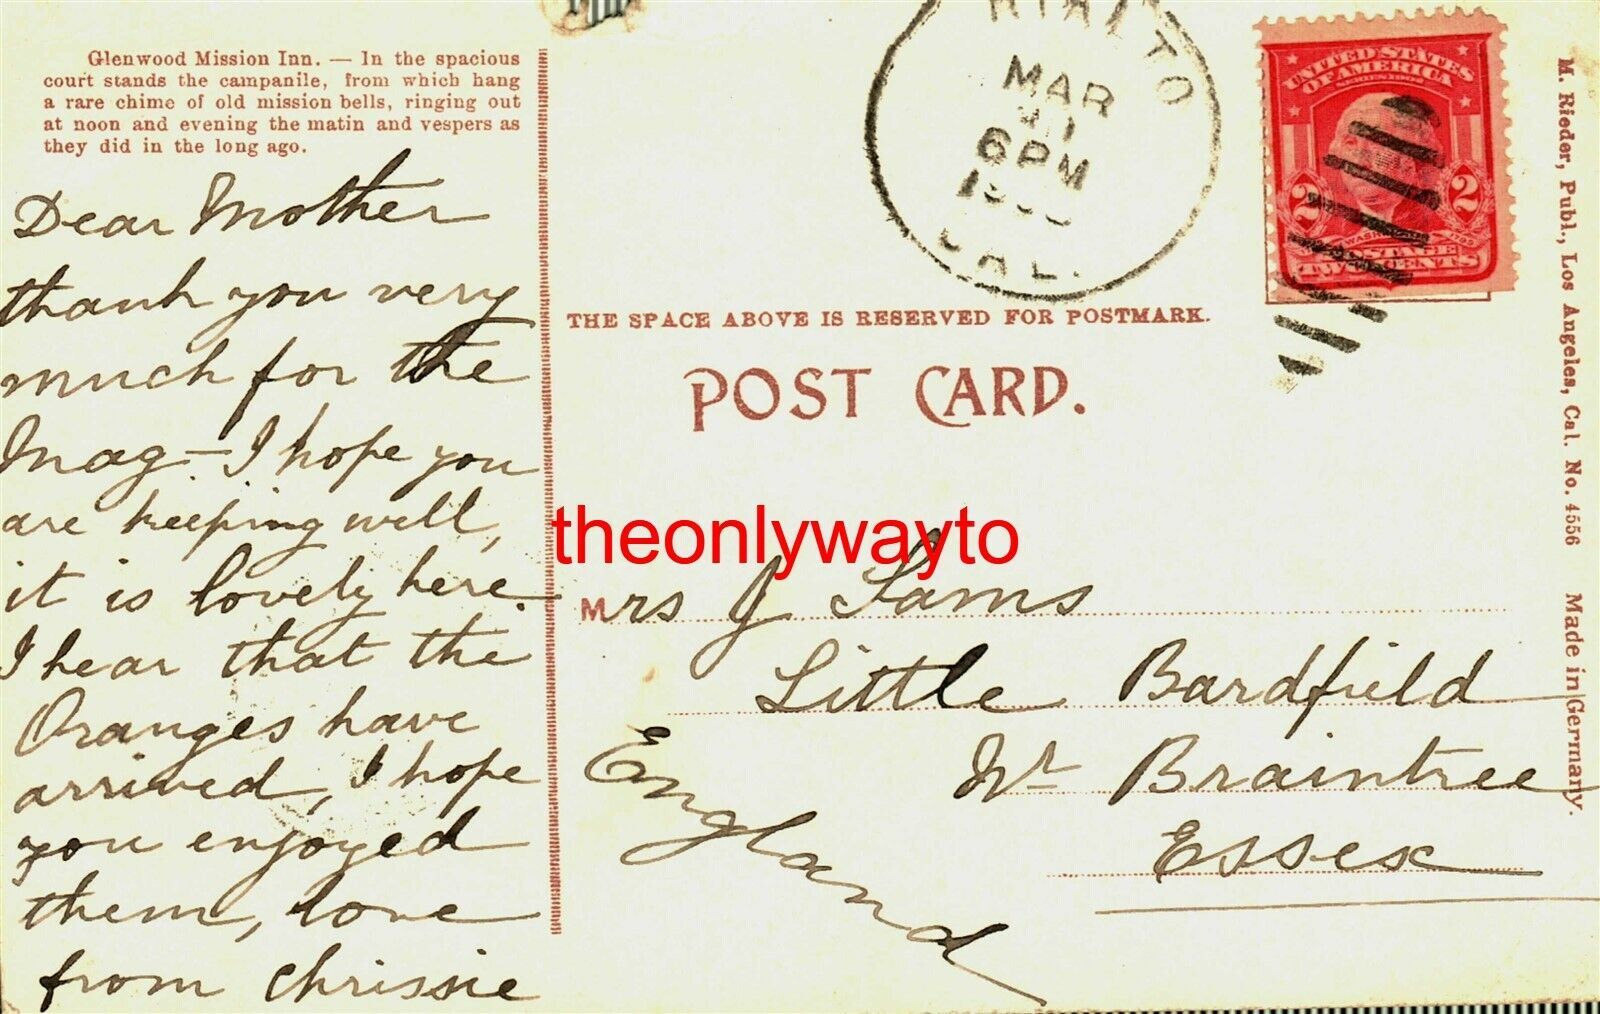 Glenwood Mission Inn. — In the spacious
court stands the campanile, from which hang
a rare chime of old mission bells, ringing out
at noon and evening the matin and vespers as
they did in the long ago.
Dear Mother
thank you very
much for the
Mag – I hope you
are keeping well,
it is lovely here.
I hear that the
Oranges have
arrived, I hope
you enjoyed
them, love
from Chrissie
RIALTO
MAR
6 PM
CAL.
UNITED STATES
OF AMERICA
SERIES 1902
2 2
WASHINGTON
POSTAGE
TWO CENTS
THE SPACE ABOVE IS RESERVED FOR POSTMARK.
POST CARD.
theonlywayto
Mrs J Sams
Little Bardfield
Nr Braintree
Essex
England
M. Rieder, Publ., Los Angeles, Cal. No. 4556 Made in Germany.